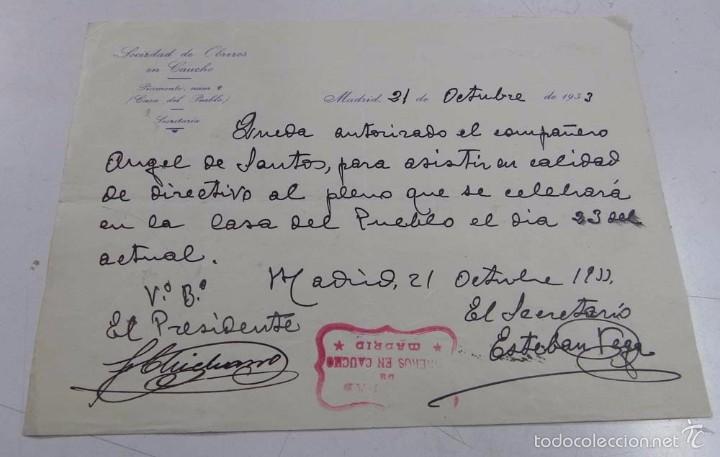 Sociedad de Obreros
en Caucho
Piamonte, núm 2
(Casa del Pueblo)
Secretaría
Madrid, 21 de Octubre de 1933
Queda autorizado el compañero
Angel de Santos, para asistir en calidad
de directivo al pleno que se celebrará
en la Casa del Pueblo el dia 23 del
actual.
Madrid, 21 Octubre 1933.
V.º B.º
El Presidente
El Secretario
Esteban Vega
OBREROS EN CAUCHO
DE
★ MADRID ★
todocoleccion.net
tc